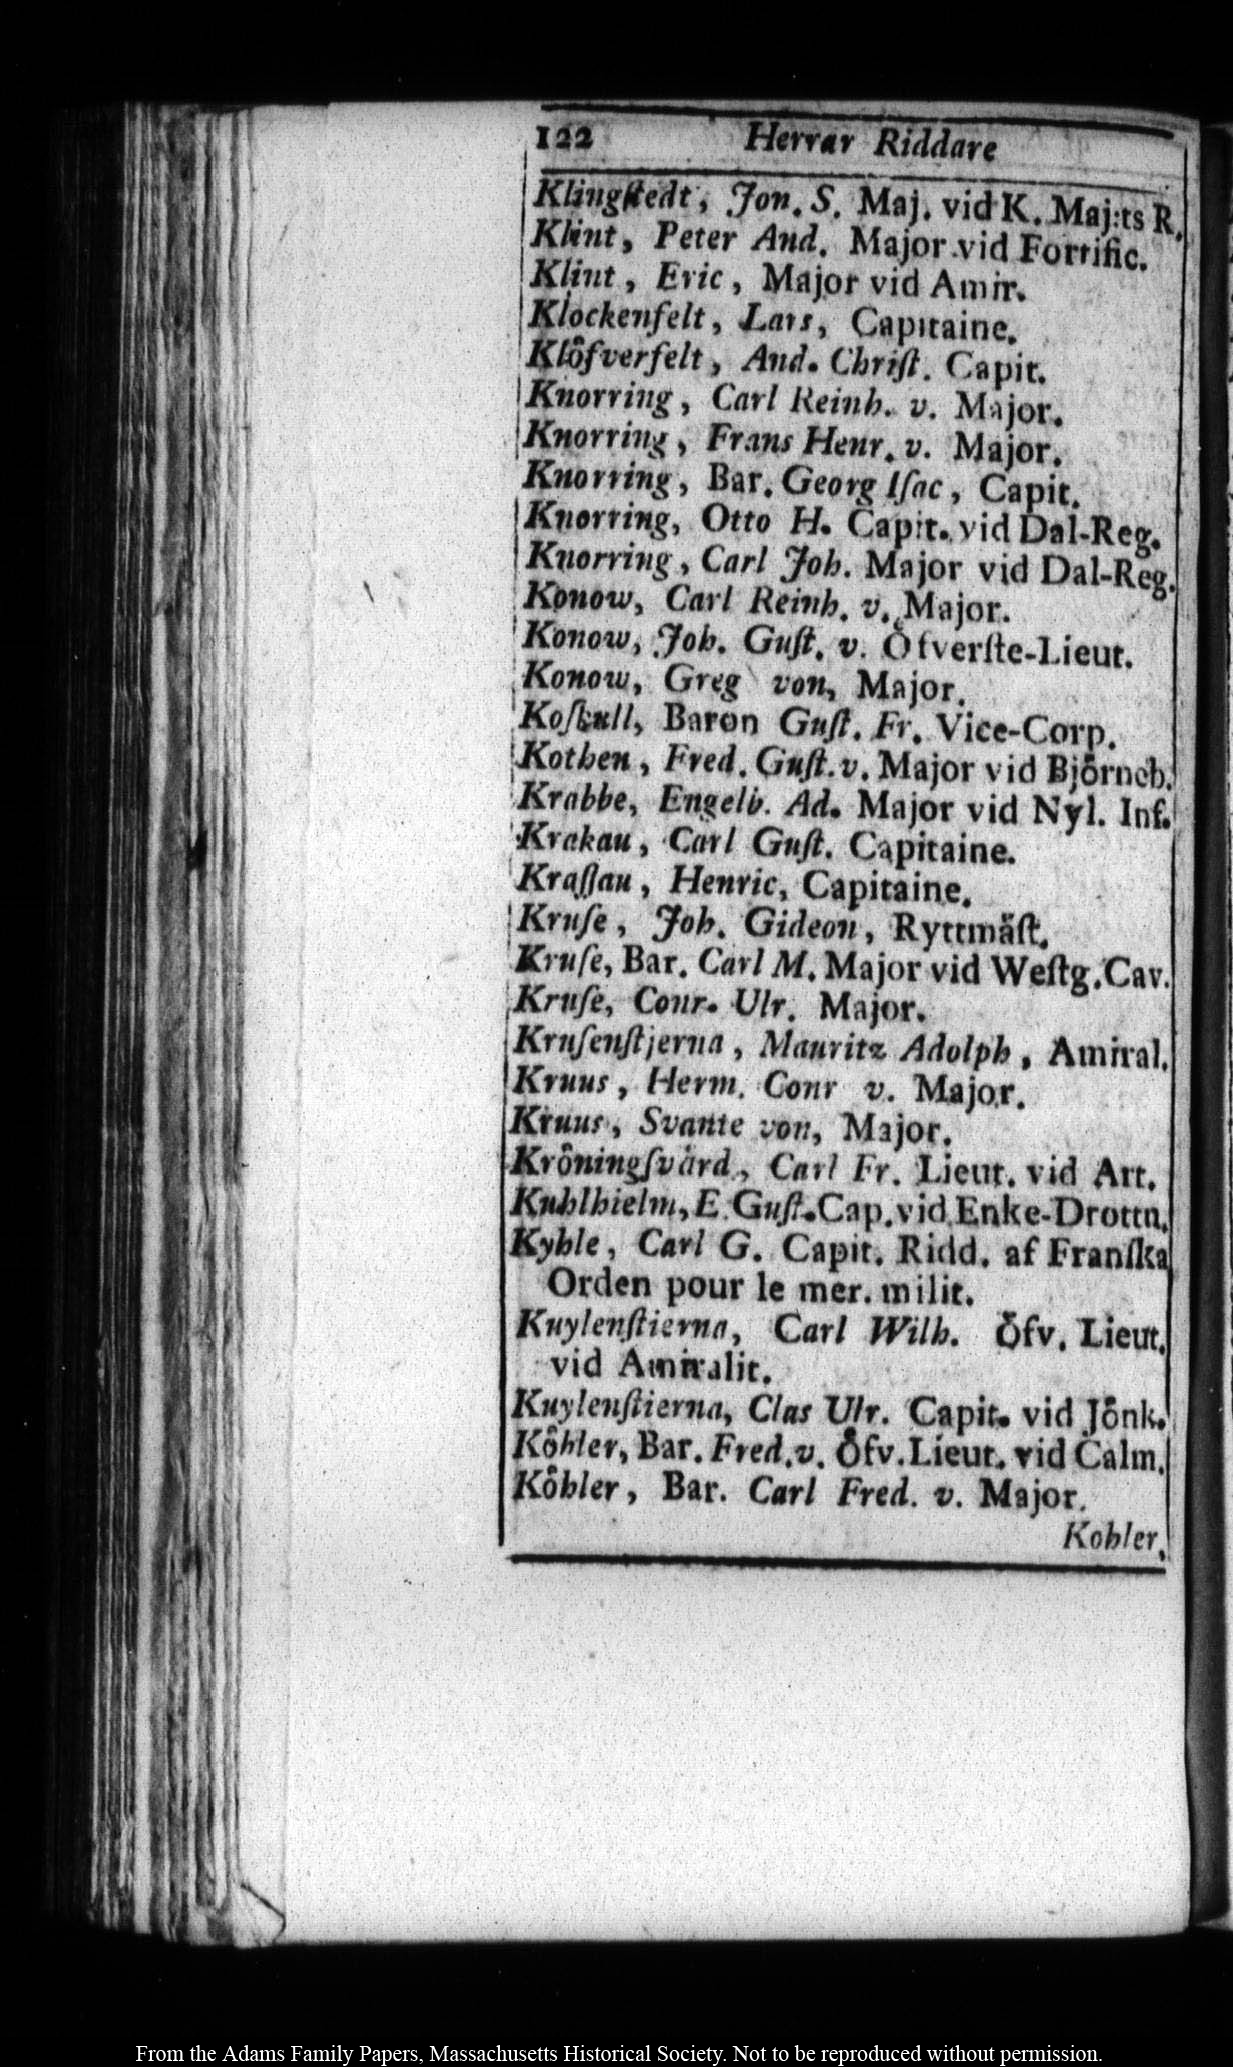 122 Herrar Riddare
Klingſtedt, Jon. S. Maj. vid K. Maj:ts R.
Klint, Peter And. Major vid Fortific.
Klint, Eric, Major vid Amir.
Klockenfelt, Lars, Capitaine.
Klöfverfelt, And. Chriſt. Capit.
Knorring, Carl Reinh. v. Major.
Knorring, Frans Henr. v. Major.
Knorring, Bar. Georg Iſac, Capit.
Knorring, Otto H. Capit. vid Dal-Reg.
Knorring, Carl Joh. Major vid Dal-Reg.
Konow, Carl Reinh. v. Major.
Konow, Joh. Guſt. v. Öfverſte-Lieut.
Konow, Greg von, Major.
Koſkull, Baron Guſt. Fr. Vice-Corp.
Kothen, Fred. Guſt. v. Major vid Björneb.
Krabbe, Engelb. Ad. Major vid Nyl. Inf.
Krakau, Carl Guſt. Capitaine.
Kraſſau, Henric, Capitaine.
Kruſe, Joh. Gideon, Ryttmäſt.
Kruſe, Bar. Carl M. Major vid Weſtg. Cav.
Kruſe, Conr. Ulr. Major.
Kruſenſtjerna, Mauritz Adolph, Amiral.
Kruus, Herm. Conr v. Major.
Kruus, Svante von, Major.
Kröningſvärd, Carl Fr. Lieut. vid Art.
Kuhlhielm, E. Guſt. Cap. vid Enke-Drottn.
Kyhle, Carl G. Capit. Ridd. af Franſka
Orden pour le mer. milit.
Kuylenſtierna, Carl Wilh. Öfv. Lieut.
vid Amiralit.
Kuylenſtierna, Clas Ulr. Capit. vid Jönk.
Köhler, Bar. Fred. v. Öfv. Lieut. vid Calm.
Köhler, Bar. Carl Fred. v. Major.
Kohler,
From the Adams Family Papers, Massachusetts Historical Society. Not to be reproduced without permission.